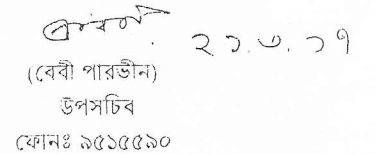 ২১.৩.১৭
(বেবী পারভীন)
উপসচিব
ফোনঃ ৯৫১৫৫৯০